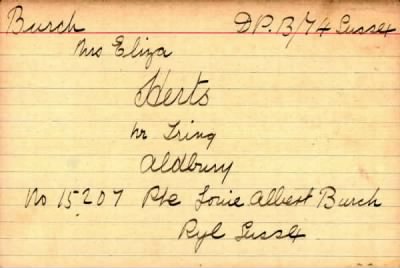 Burch DP.B/74 Sussex
Mrs Eliza
Herts
nr Tring
Aldbury
No 15207 Pte Louie Albert Burch
Ryl Sussex